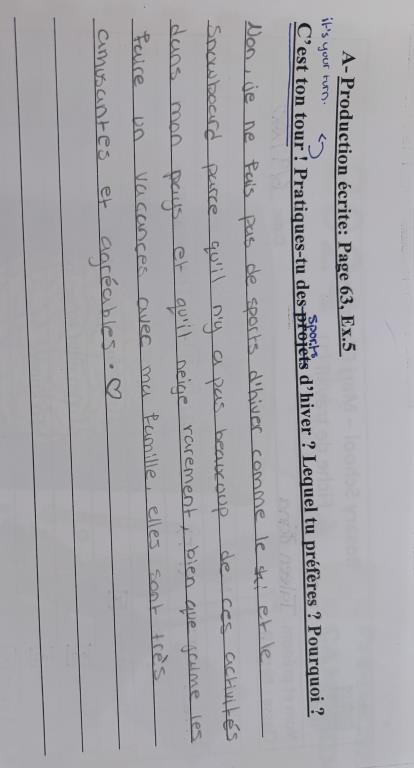 A- Production écrite: Page 63, Ex.5
it's your turn.
sports
C'est ton tour ! Pratiques-tu des projets d'hiver ? Lequel tu préfères ? Pourquoi ?
Non, je ne fais pas de sports d'hiver comme le ski et le
snowboard parce qu'il n'y a pas beaucoup de ces activités
dans mon pays et qu'il neige rarement, bien que j'aime les
faire un vacances avec ma famille, elles sont très
amusantes et agréables. ♡